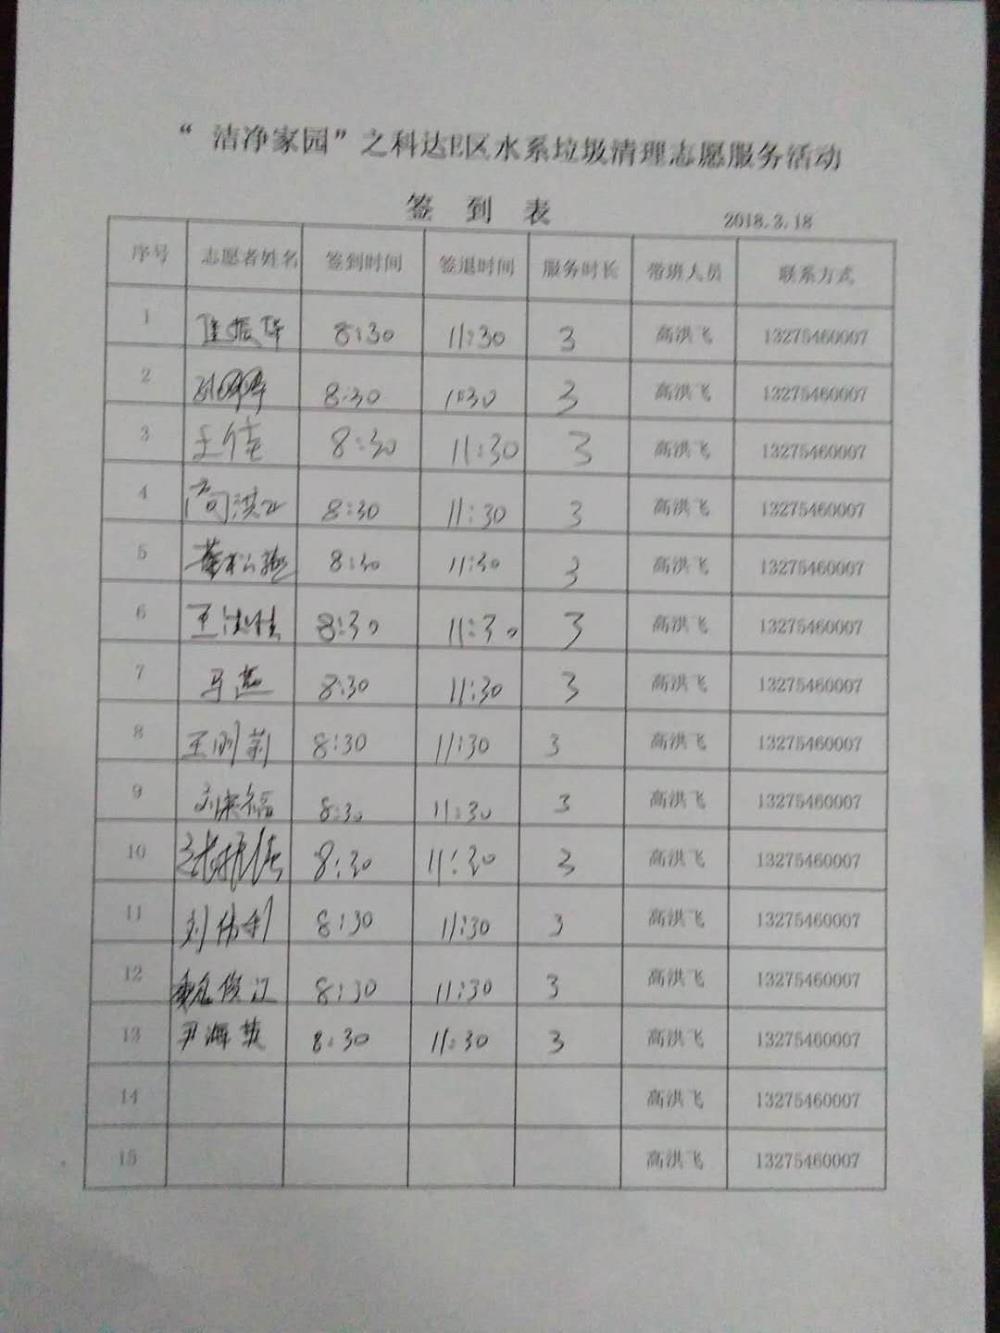 “洁净家园”之科达E区水系垃圾清理志愿服务活动
签 到 表 2018.3.18
序号 志愿者姓名 签到时间 签退时间 服务时长 带班人员 联系方式
1 8:30 11:30 3 高洪飞 13275460007
2 8:30 11:30 3 高洪飞 13275460007
3 王佳 8:30 11:30 3 高洪飞 13275460007
4 高洪飞 8:30 11:30 3 高洪飞 13275460007
5 8:30 11:30 3 高洪飞 13275460007
6 8:30 11:30 3 高洪飞 13275460007
7 马燕 8:30 11:30 3 高洪飞 13275460007
8 王刚莉 8:30 11:30 3 高洪飞 13275460007
9 8:30 11:30 3 高洪飞 13275460007
10 8:30 11:30 3 高洪飞 13275460007
11 刘伟利 8:30 11:30 3 高洪飞 13275460007
12 魏俊江 8:30 11:30 3 高洪飞 13275460007
13 尹海英 8:30 11:30 3 高洪飞 13275460007
14 高洪飞 13275460007
15 高洪飞 13275460007